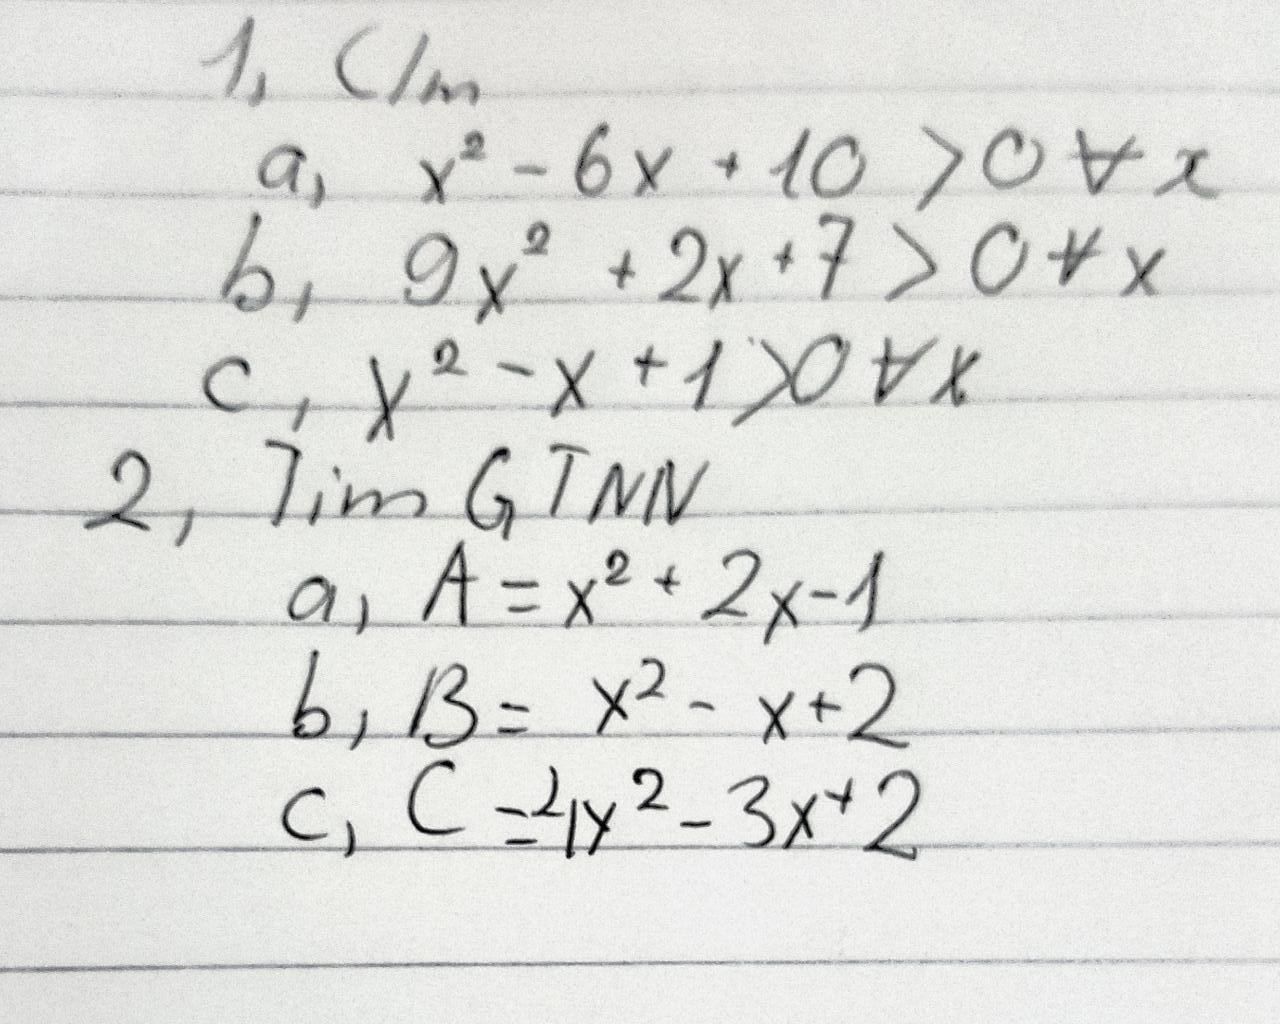 1, C/m
a, x² - 6x + 10 > 0 ∀ x
b, 9x² + 2x + 7 > 0 ∀ x
c, x² - x + 1 > 0 ∀ x
2, Tim GTNN
a, A = x² + 2x - 1
b, B = x² - x + 2
c, C = 4x² - 3x + 2